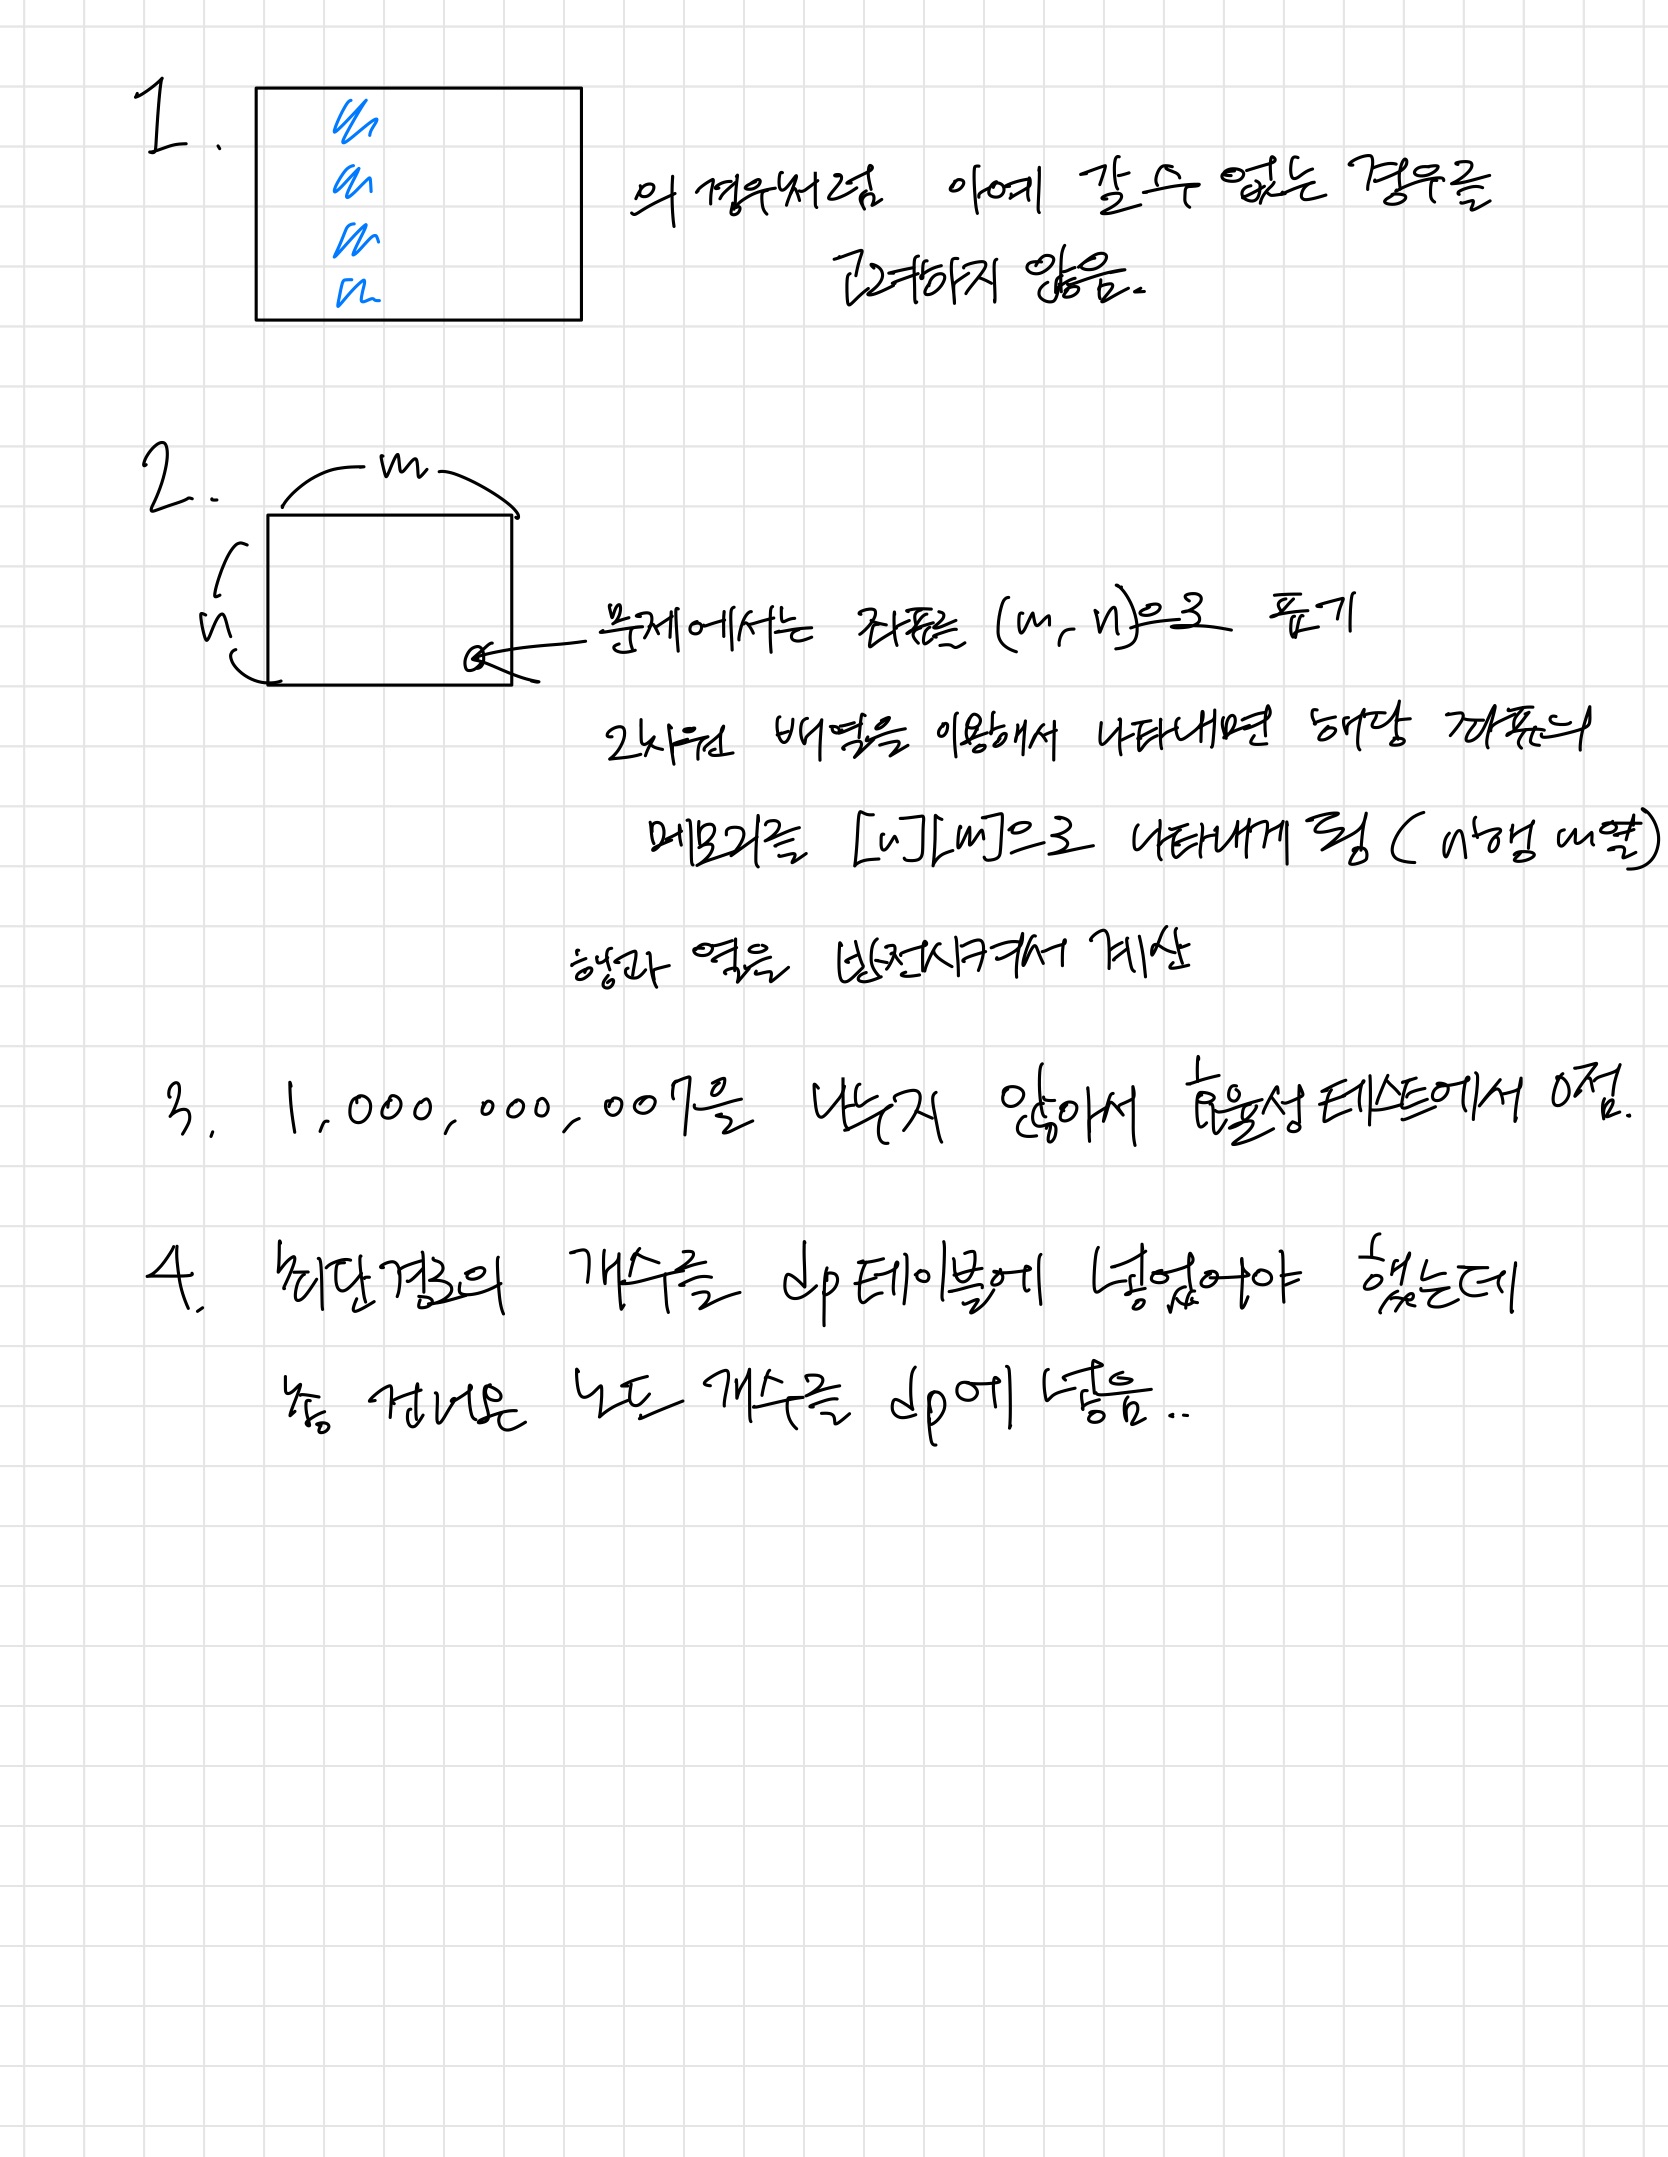 1. 의 경우처럼 아예 갈 수 없는 경우를
고려하지 않음.
2. m
n
문제에서는 좌표를 (m, n)으로 표기
2차원 배열을 이용해서 나타내면 해당 좌표의
메모리를 [n][m]으로 나타내게 됨 (n행 m열)
행과 열을 반전시켜서 계산
3. 1,000,000,007을 나누지 않아서 효율성 테스트에서 0점.
4. 최단경로의 개수를 dp 테이블에 넣었어야 했는데
총 건너온 노드 개수를 dp에 넣음..